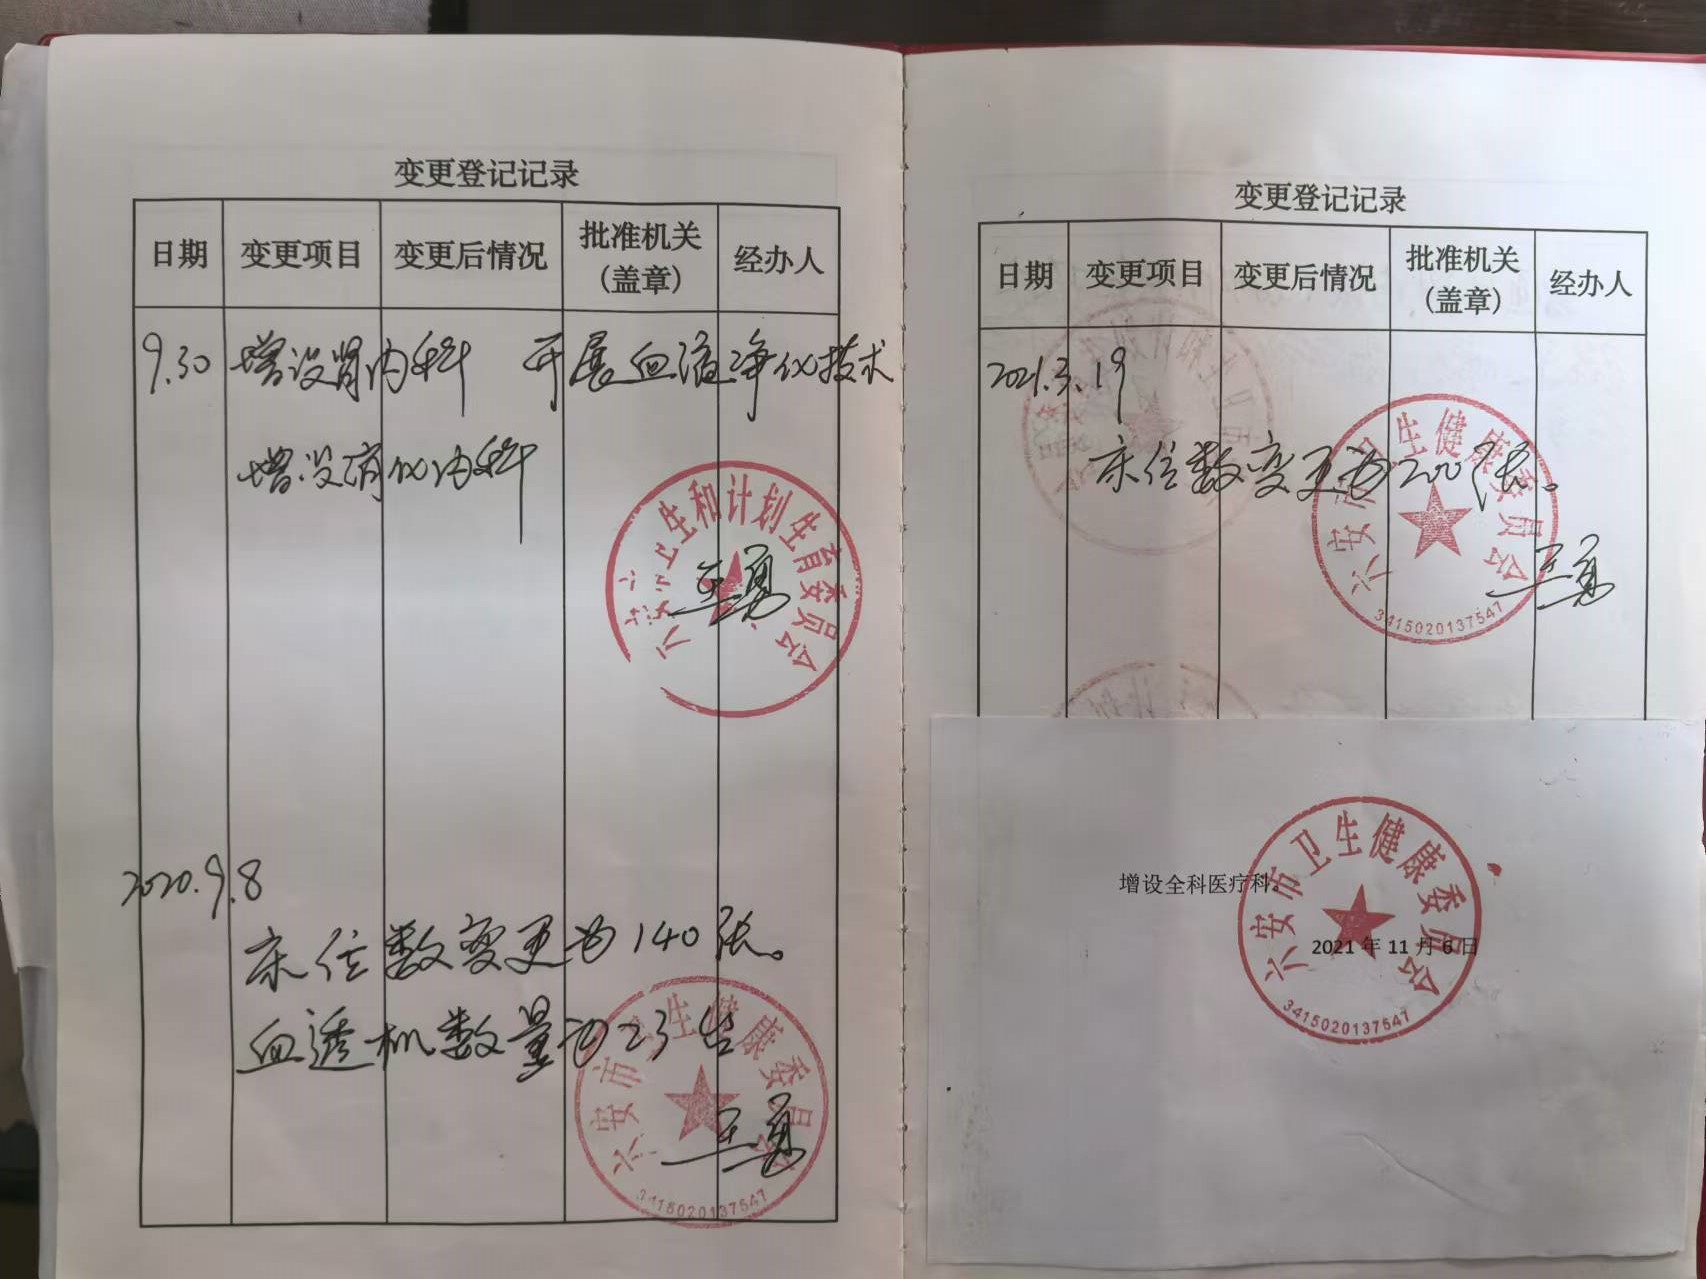 变更登记记录
日期 变更项目 变更后情况 批准机关(盖章) 经办人
9.30 增设肾内科 开展血液净化技术
增设消化内科
六安市卫生和计划生育委员会
王勇
2020.9.8
床位数变更为140张。
血透机数量为23台
六安市卫生健康委员会
王勇
3415020137547
变更登记记录
日期 变更项目 变更后情况 批准机关(盖章) 经办人
2021.3.19
床位数变更为200张。
六安市卫生健康委员会
王勇
3415020137547
增设全科医疗科。
2021年11月6日
六安市卫生健康委员会
3415020137547